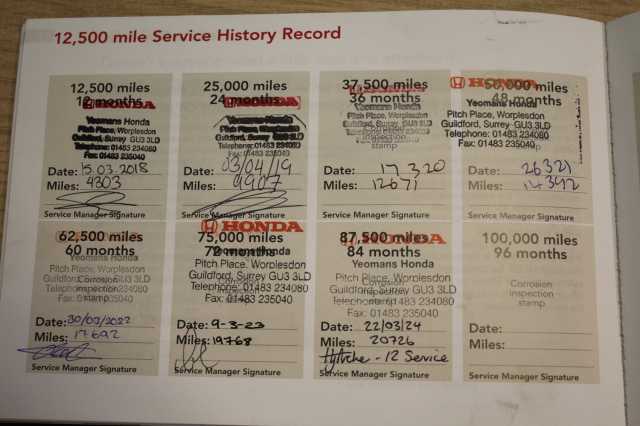 12,500 mile Service History Record
12,500 miles
12 months
HONDA
Yeomans Honda
Pitch Place, Worplesdon
Guildford, Surrey GU3 3LD
Telephone: 01483 234080
Fax: 01483 235040
Date: 15.03.2018
Miles: 4303
Service Manager Signature
25,000 miles
24 months
HONDA
Yeomans Honda
Pitch Place, Worplesdon
Guildford, Surrey GU3 3LD
Telephone: 01483 234080
Fax: 01483 235040
Date: 03/04/19
Miles: 9907
Service Manager Signature
37,500 miles
36 months
Yeomans Honda
Pitch Place, Worplesdon
inspection
stamp
Date: 17 3 20
Miles: 12671
Service Manager Signature
HONDA
50,000 miles
48 months
Yeomans Honda
Pitch Place, Worplesdon
Guildford, Surrey GU3 3LD
Telephone: 01483 234080
Fax: 01483 235040
Date: 26 3 21
Miles: 14392
Service Manager Signature
62,500 miles
60 months
Yeomans Honda
Pitch Place, Worplesdon
Guildford, Surrey GU3 3LD
Corrosion
Telephone: 01483 234080
inspection
Fax: 01483 235040
stamp
Date: 30/03/2022
Miles: 17692
Service Manager Signature
HONDA
75,000 miles
72 months
Yeomans Honda
Pitch Place, Worplesdon
Guildford, Surrey GU3 3LD
Telephone: 01483 234080
Fax: 01483 235040
Date: 9-3-23
Miles: 19768
Service Manager Signature
HONDA
87,500 miles
84 months
Yeomans Honda
Pitch Place, Worplesdon
Corrosion
Guildford, Surrey GU3 3LD
inspection
Telephone: 01483 234080
stamp
Fax: 01483 235040
Date: 22/03/24
Miles: 20726
- 12 Service
Service Manager Signature
100,000 miles
96 months
Corrosion
inspection
stamp
Date:
Miles:
Service Manager Signature